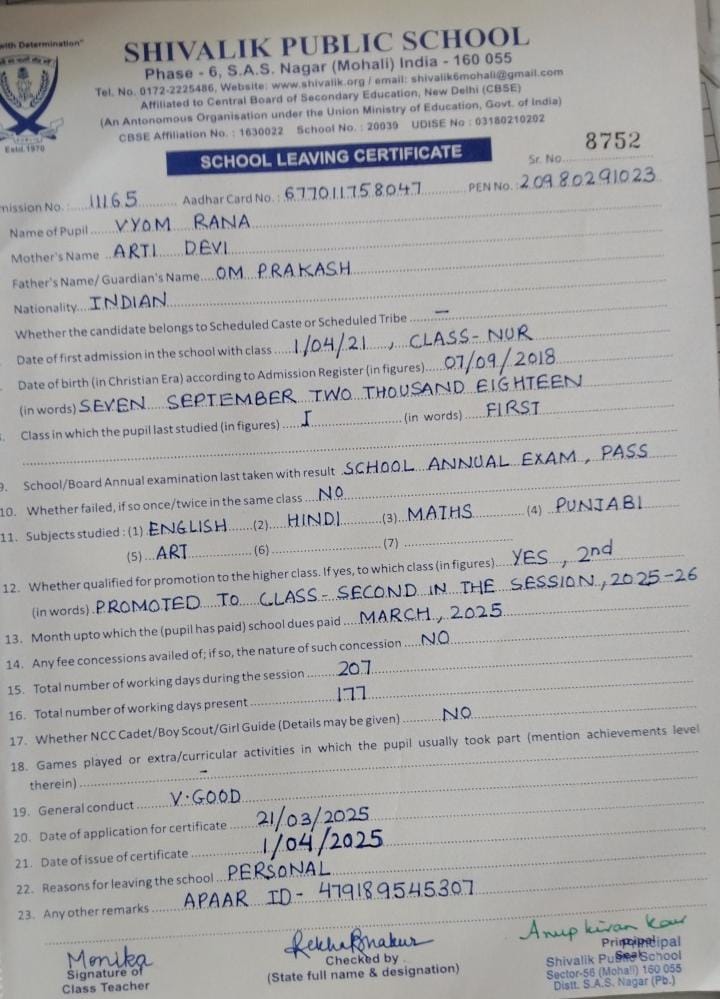 with Determination"
Estd. 1970
SHIVALIK PUBLIC SCHOOL
Phase - 6, S.A.S. Nagar (Mohali) India - 160 055
Tel. No. 0172-2225486, Website: www.shivalik.org / email: shivalik6mohali@gmail.com
Affiliated to Central Board of Secondary Education, New Delhi (CBSE)
(An Antonomous Organisation under the Union Ministry of Education, Govt. of India)
CBSE Affiliation No. : 1630022 School No. : 20039 UDISE No : 03180210202
SCHOOL LEAVING CERTIFICATE
Sr. No. 8752
mission No.: 11165 Aadhar Card No.: 677011758047 PEN No.: 20980291023
Name of Pupil VYOM RANA
Mother's Name ARTI DEVI
Father's Name/ Guardian's Name OM PRAKASH
Nationality INDIAN
Whether the candidate belongs to Scheduled Caste or Scheduled Tribe —
Date of first admission in the school with class 1/04/21, CLASS-NUR
Date of birth (in Christian Era) according to Admission Register (in figures) 07/09/2018
(in words) SEVEN SEPTEMBER TWO THOUSAND EIGHTEEN
Class in which the pupil last studied (in figures) I (in words) FIRST
9. School/Board Annual examination last taken with result SCHOOL ANNUAL EXAM, PASS
10. Whether failed, if so once/twice in the same class NO
11. Subjects studied : (1) ENGLISH (2) HINDI (3) MATHS (4) PUNJABI
(5) ART (6) (7)
12. Whether qualified for promotion to the higher class. If yes, to which class (in figures) YES, 2nd
(in words) PROMOTED TO CLASS-SECOND IN THE SESSION, 2025-26
13. Month upto which the (pupil has paid) school dues paid MARCH, 2025
14. Any fee concessions availed of; if so, the nature of such concession NO
15. Total number of working days during the session 207
16. Total number of working days present 177
17. Whether NCC Cadet/Boy Scout/Girl Guide (Details may be given) NO
18. Games played or extra/curricular activities in which the pupil usually took part (mention achievements level
therein) -
19. General conduct V.GOOD
20. Date of application for certificate 21/03/2025
21. Date of issue of certificate 1/04/2025
22. Reasons for leaving the school PERSONAL
23. Any other remarks APAAR ID- 479189545307
Monika
Signature of
Class Teacher
Checked by
(State full name & designation)
Anup Kiran Kaur
Principal
Seal
Principal
Shivalik Public School
Sector-56 (Mohali) 160 055
Distt. S.A.S. Nagar (Pb.)